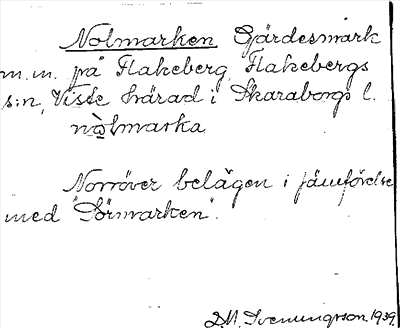 Nolmarken Gärdesmark
m.m. på Flakeberg, Flakebergs
s:n, Viste härad i Skaraborgs l.
nòlmarka
Norröver belägen i jämförelse
med "Sörmarken".
D.M. Svenungsson. 1939.